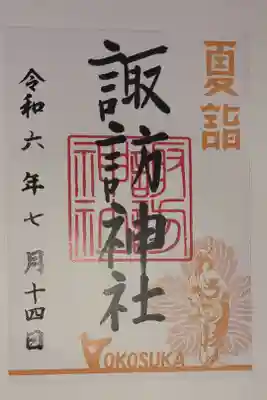 夏詣
諏訪神社
令和六年七月十四日
諏訪
神社
YOKOSUKA